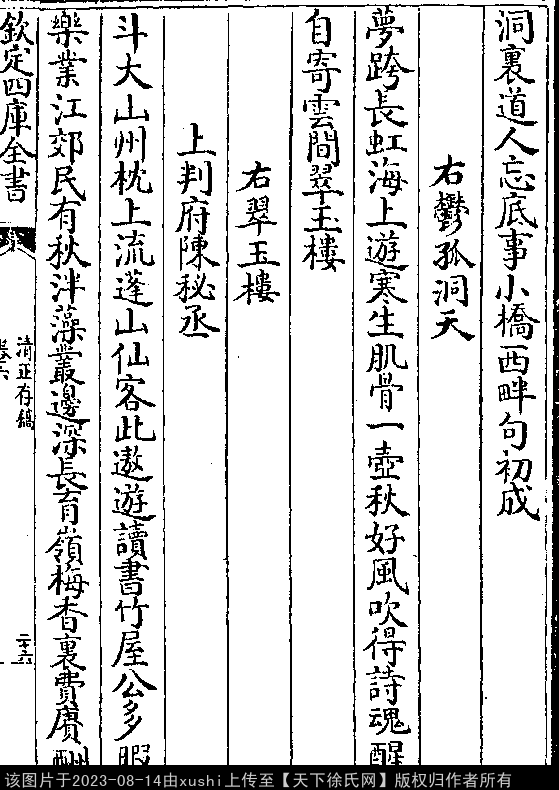 洞裏道人忘底事小橋西畔句初成
右鬱孤洞天
夢跨長虹海上遊寒生肌骨一壺秋好風吹得詩魂醒
自寄雲間翠玉樓
右翠玉樓
上判府陳秘丞
斗大山州枕上流蓬山仙客此遨遊讀書竹屋公多暇
樂業江郊民有秋泮藻叢邊深長育嶺梅香裏費賡酬
欽定四庫全書
清正存稿
卷六
二十六
该图片于2023-08-14由xushi上传至【天下徐氏网】版权归作者所有